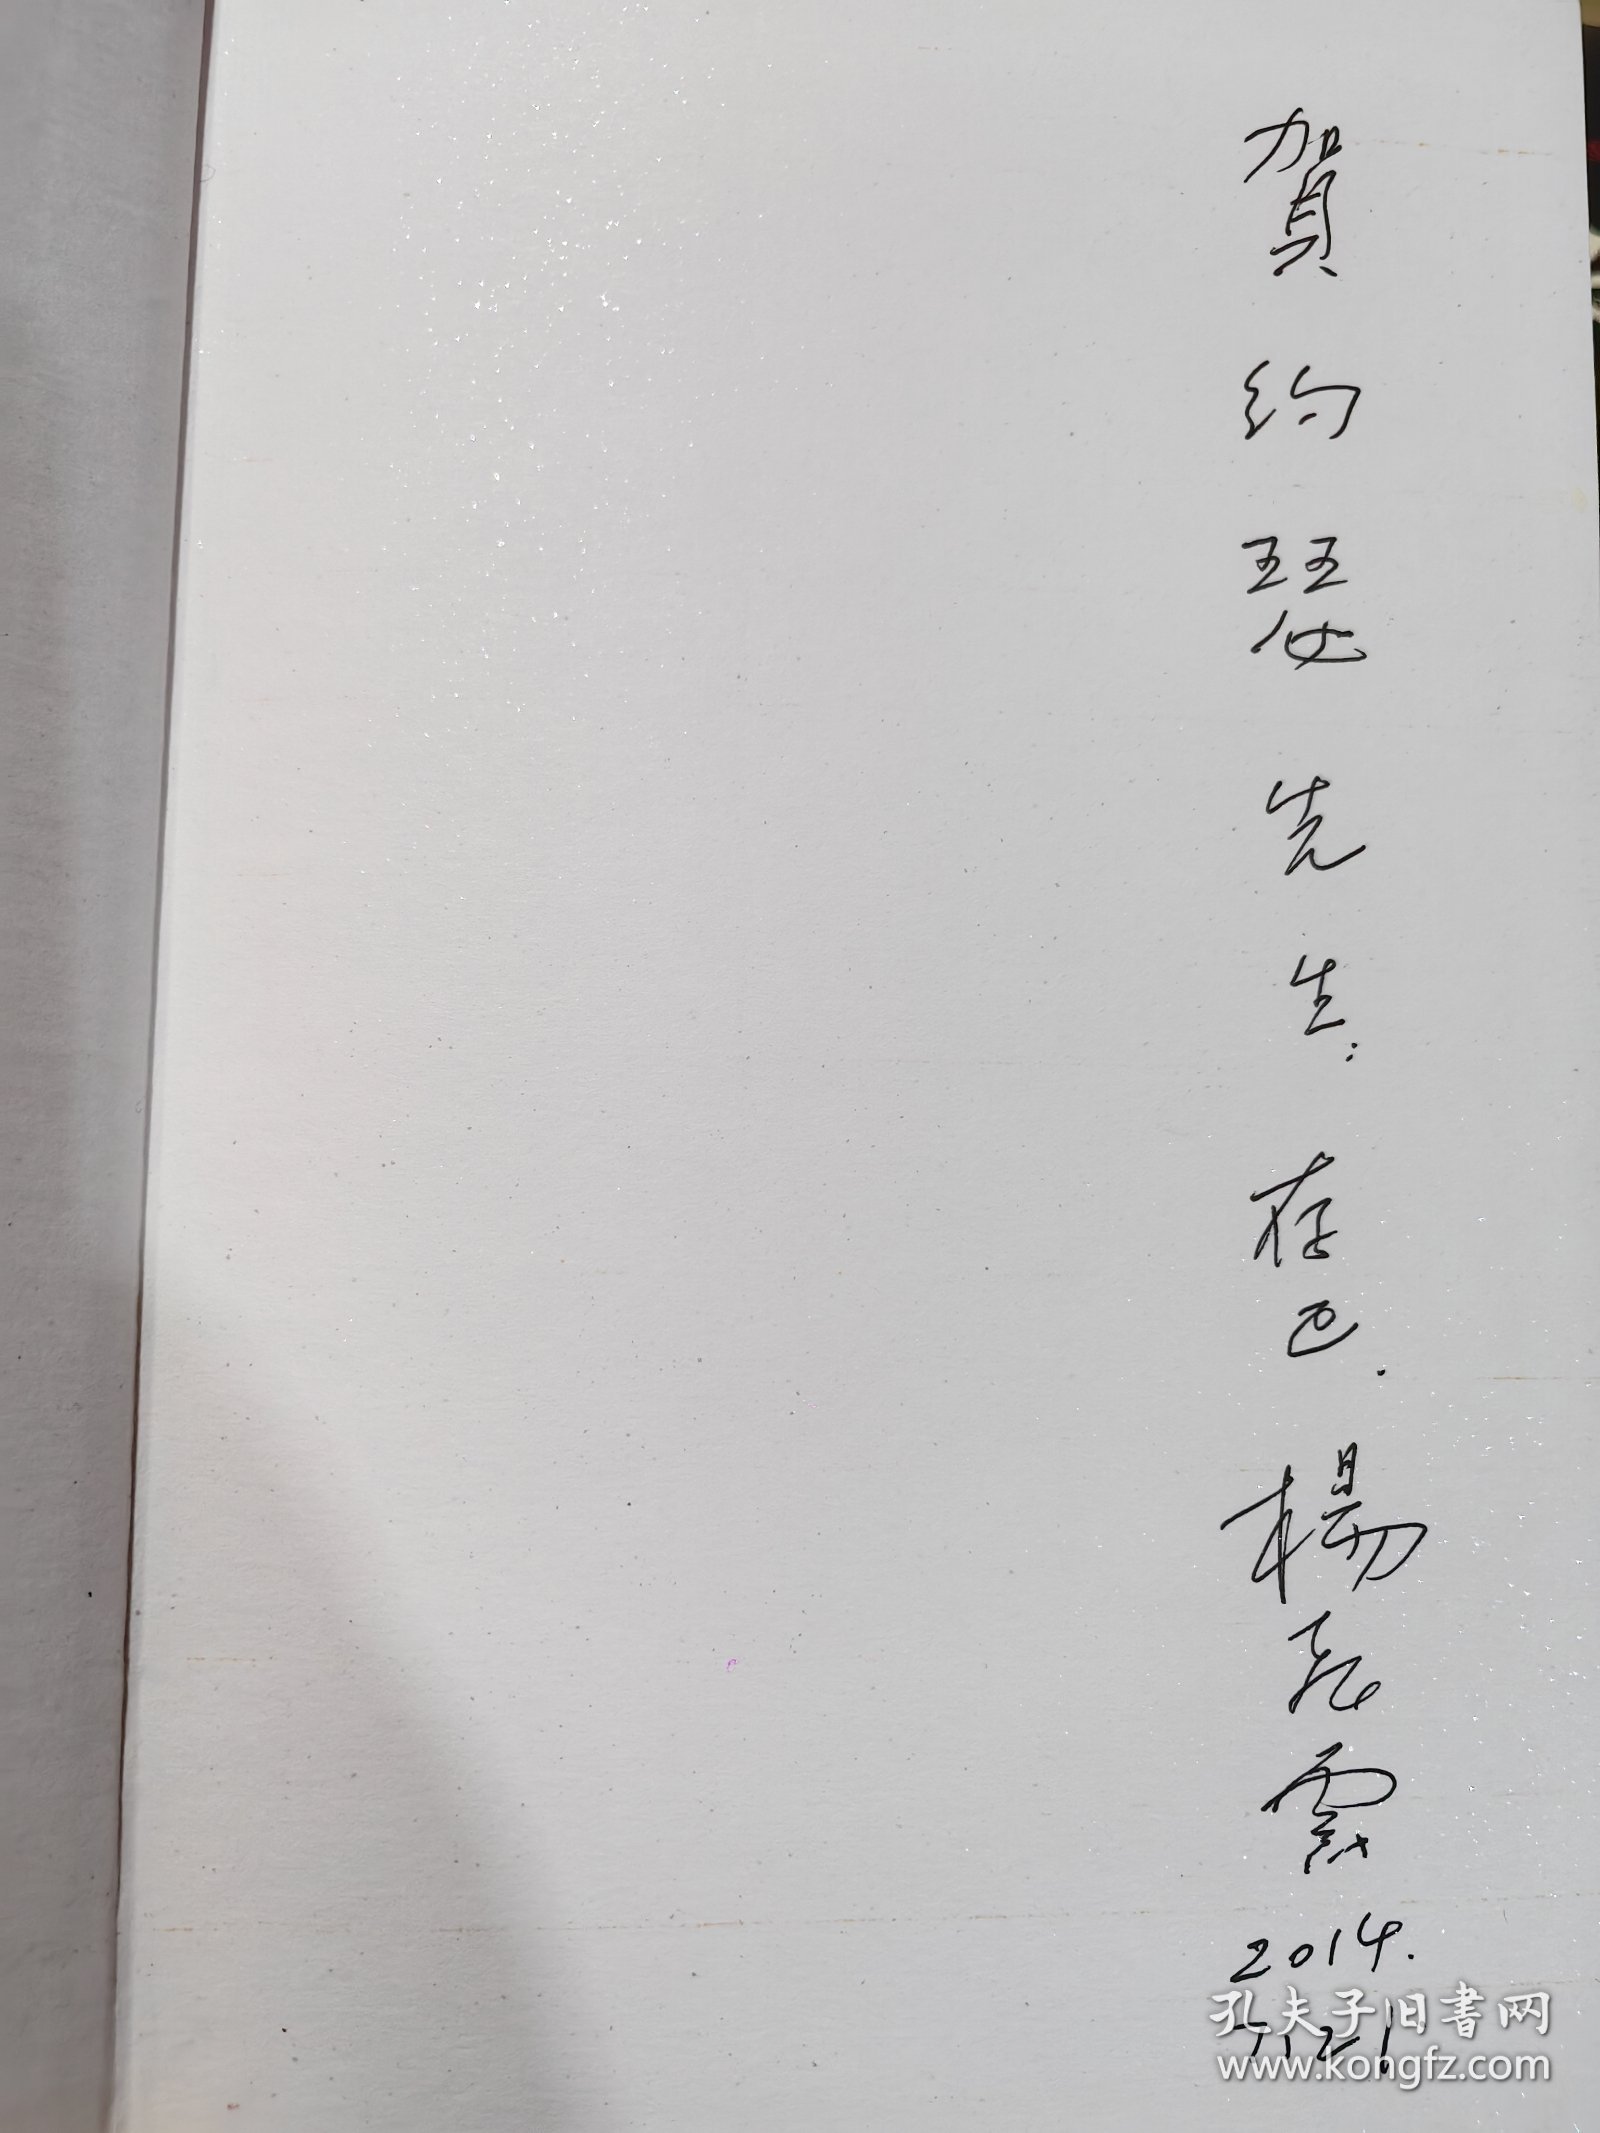 賀約瑟先生：存
楊
2014.
孔夫子旧書网
www.kongfz.com